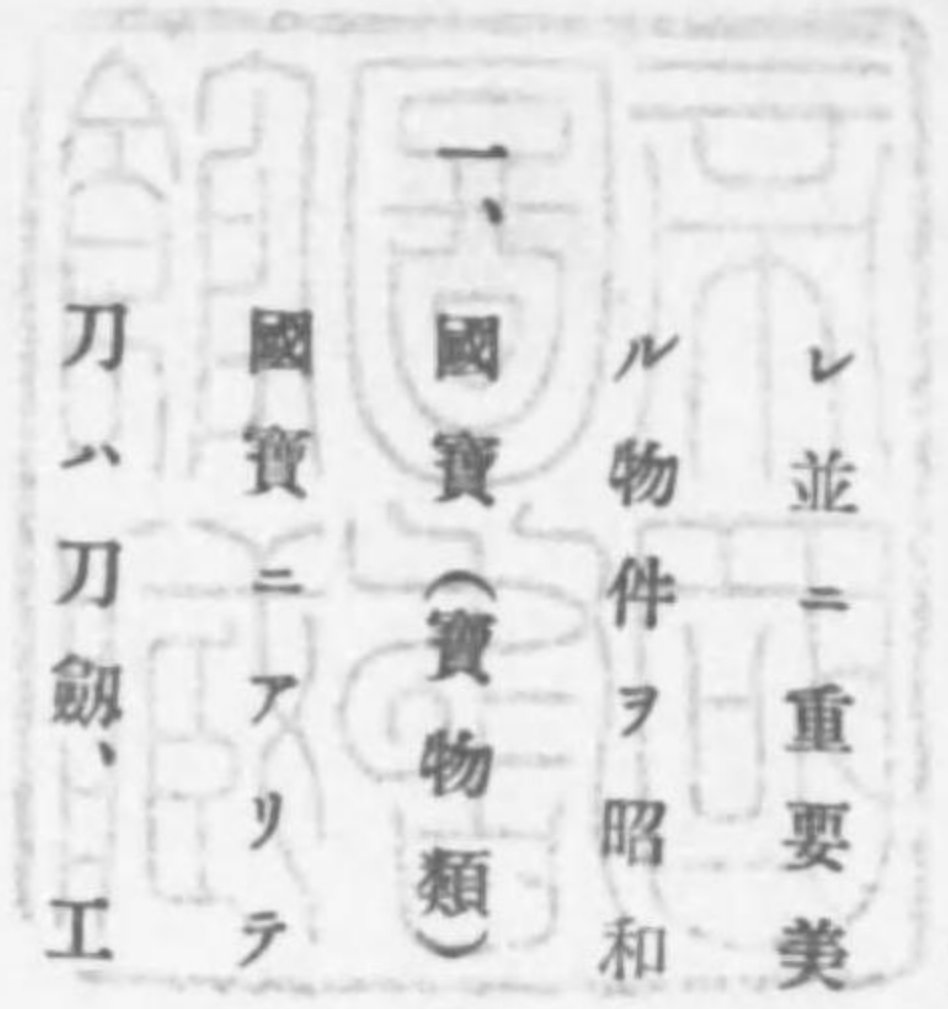 レ並ニ重要美
ル物件ヲ昭和
一、國寶（寶物類）
國寶ニアリテ
刀ハ刀劔、工